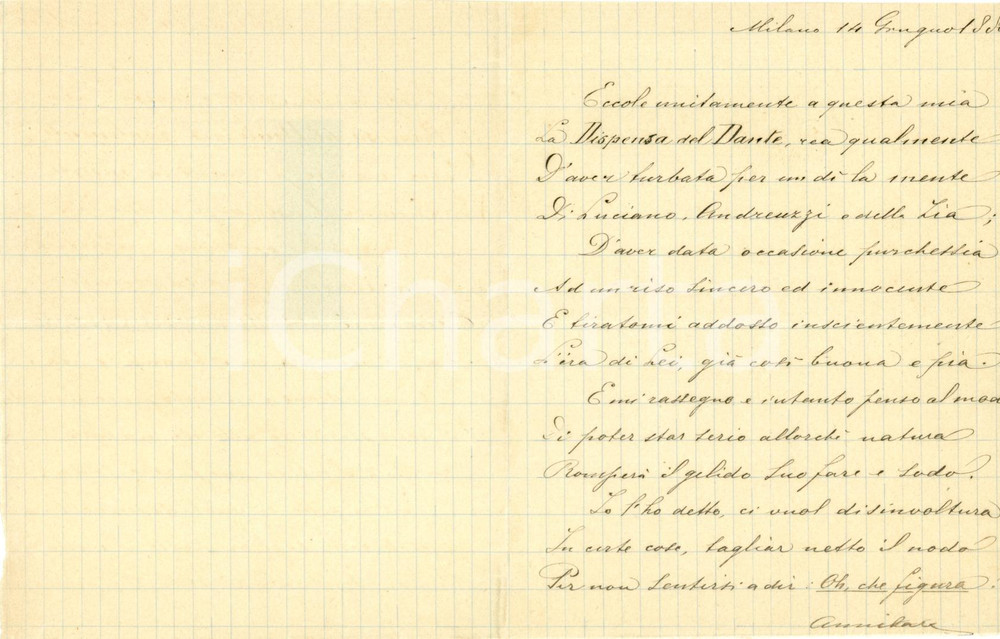 Milano 14 Giugno 188
Eccole unitamente a questa mia
La Dispensa del Dante, rea qualmente
D'aver turbata per un dì la mente
Di Luciano, Andreuzzi e della Zia;
D'aver data occasione purchessia
Ad un riso sincero ed innocente
E tiratomi addosto inscientemente
L'ira di Lei, già così buona e pia.
E mi rassegno e intanto penso al mod
Di poter star serio allorchè natura
Romperà il gelido suo fare e sodo.
Io l'ho detto, ci vuol disinvoltura
In certe cose, tagliar netto il nodo
Per non sentirsi a dir: Oh, che figura.
Annibale
iCharta